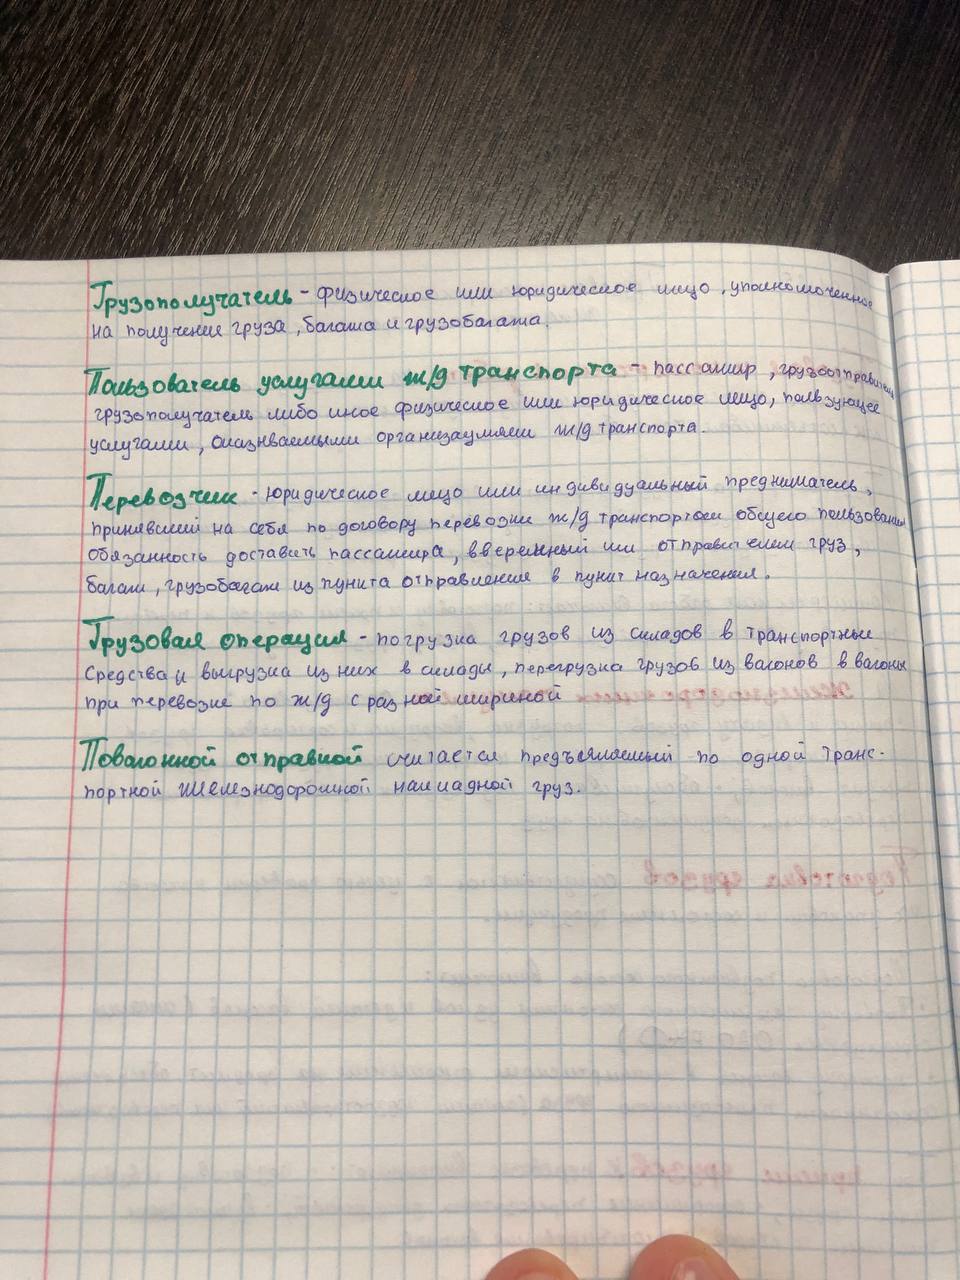 Грузополучатель - физическое или юридическое лицо, уполномоченное
на получение груза, багажа и грузобагажа.
Пользователь услугами ж/д транспорта - пассажир, грузоотправитель
грузополучатель либо иное физическое или юридическое лицо, пользующее
услугами, оказываемыми организациями ж/д транспорта.
Перевозчик - юридическое лицо или индивидуальный предниматель,
принявший на себя по договору перевозки ж/д транспортом общего пользования
обязанность доставить пассажира, вверенный им отправителем груз,
багаж, грузобагаж из пункта отправления в пункт назначения.
Грузовая операция - погрузка грузов из складов в транспортные
средства и выгрузка из них в склады, перегрузка грузов из вагонов в вагоны
при перевозке по ж/д с разной шириной
Повагонной отправкой считается предъявляемый по одной транс-
портной железнодорожной накладной груз.